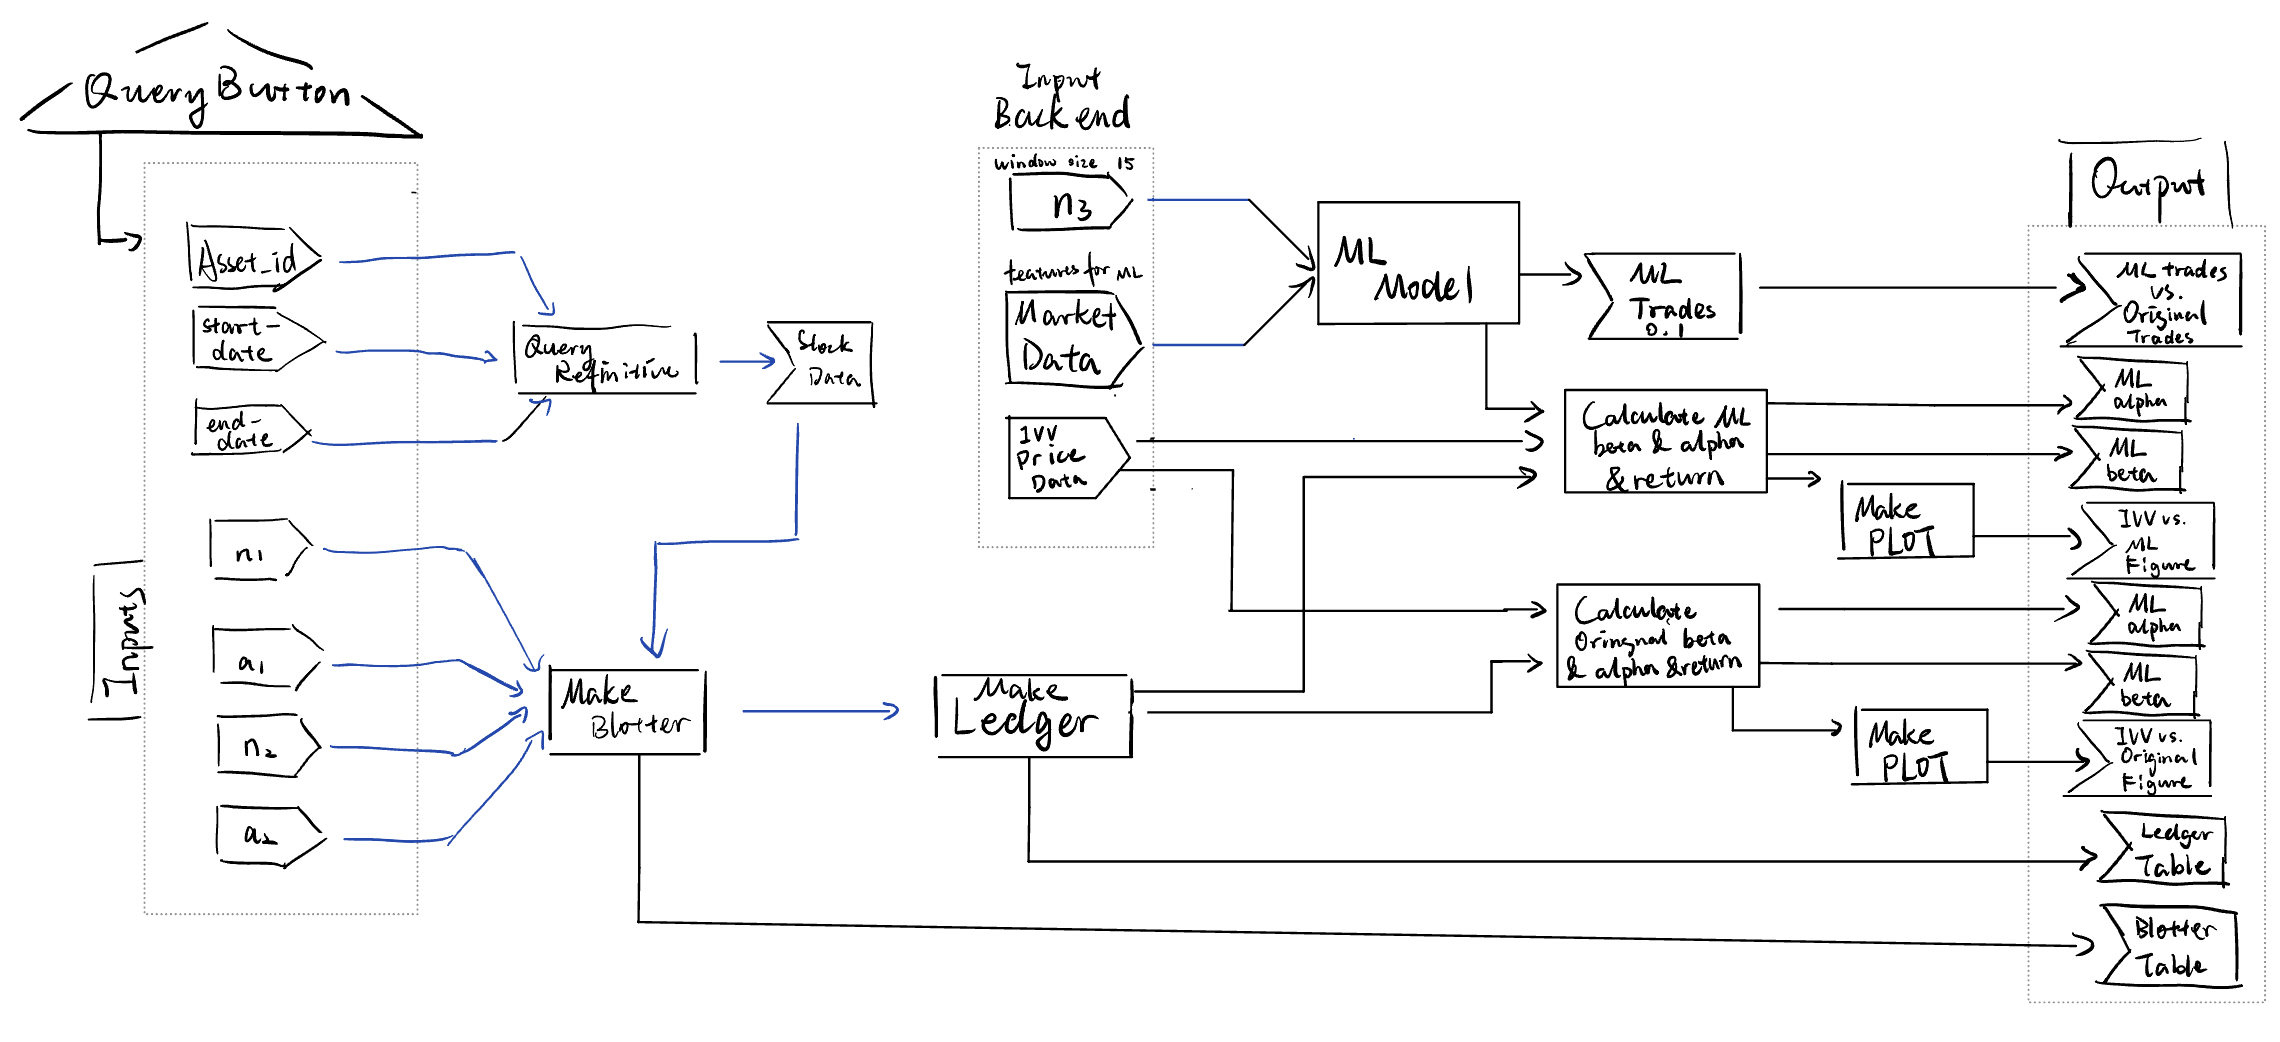 Query Button
Asset_id
start-
date
end-
date
Inputs
n1
a1
n2
a2
Query
Refinitive
Stock
Data
Make
Blotter
Make
Ledger
Input
Backend
window size 15
n3
features for ML
Market
Data
IVV
Price
Data
ML
Model
ML
Trades
0.1
Calculate ML
beta & alpha
& return
Make
PLOT
Calculate
Oringnal beta
& alpha & return
Make
PLOT
Output
ML trades
vs.
Original
Trades
ML
alpha
ML
beta
IVV vs.
ML
Figure
ML
alpha
ML
beta
IVV vs.
Original
Figure
Ledger
Table
Blotter
Table